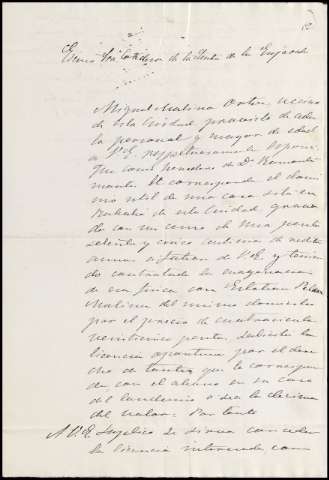 Excmo Sor
de la de la
Miguel Molina Ortin, vecino
de esta Ciudad provisto de cédu
la personal y mayor de edad
a V. E. respetuosamente expone:
Que como heredero de Dn
le corresponde el domi
nio util de una casa sita en
de esta Ciudad, grava
do con un censo de una peseta
setenta y cinco centimos de redito
anuo a favor de V. E. y tenien
do contratada la enagenacion
de esa finca con
Molina del mismo domicilio
por el precio de cuatrocientas
veinticinco pesetas, solicita la
licencia oportuna por el dere
cho de tanteo que le correspon
de con el abono en su caso
del laudemio o sea la decima
del valor. Por tanto
A V. E. Suplica se digne conceder
la licencia interesada, con